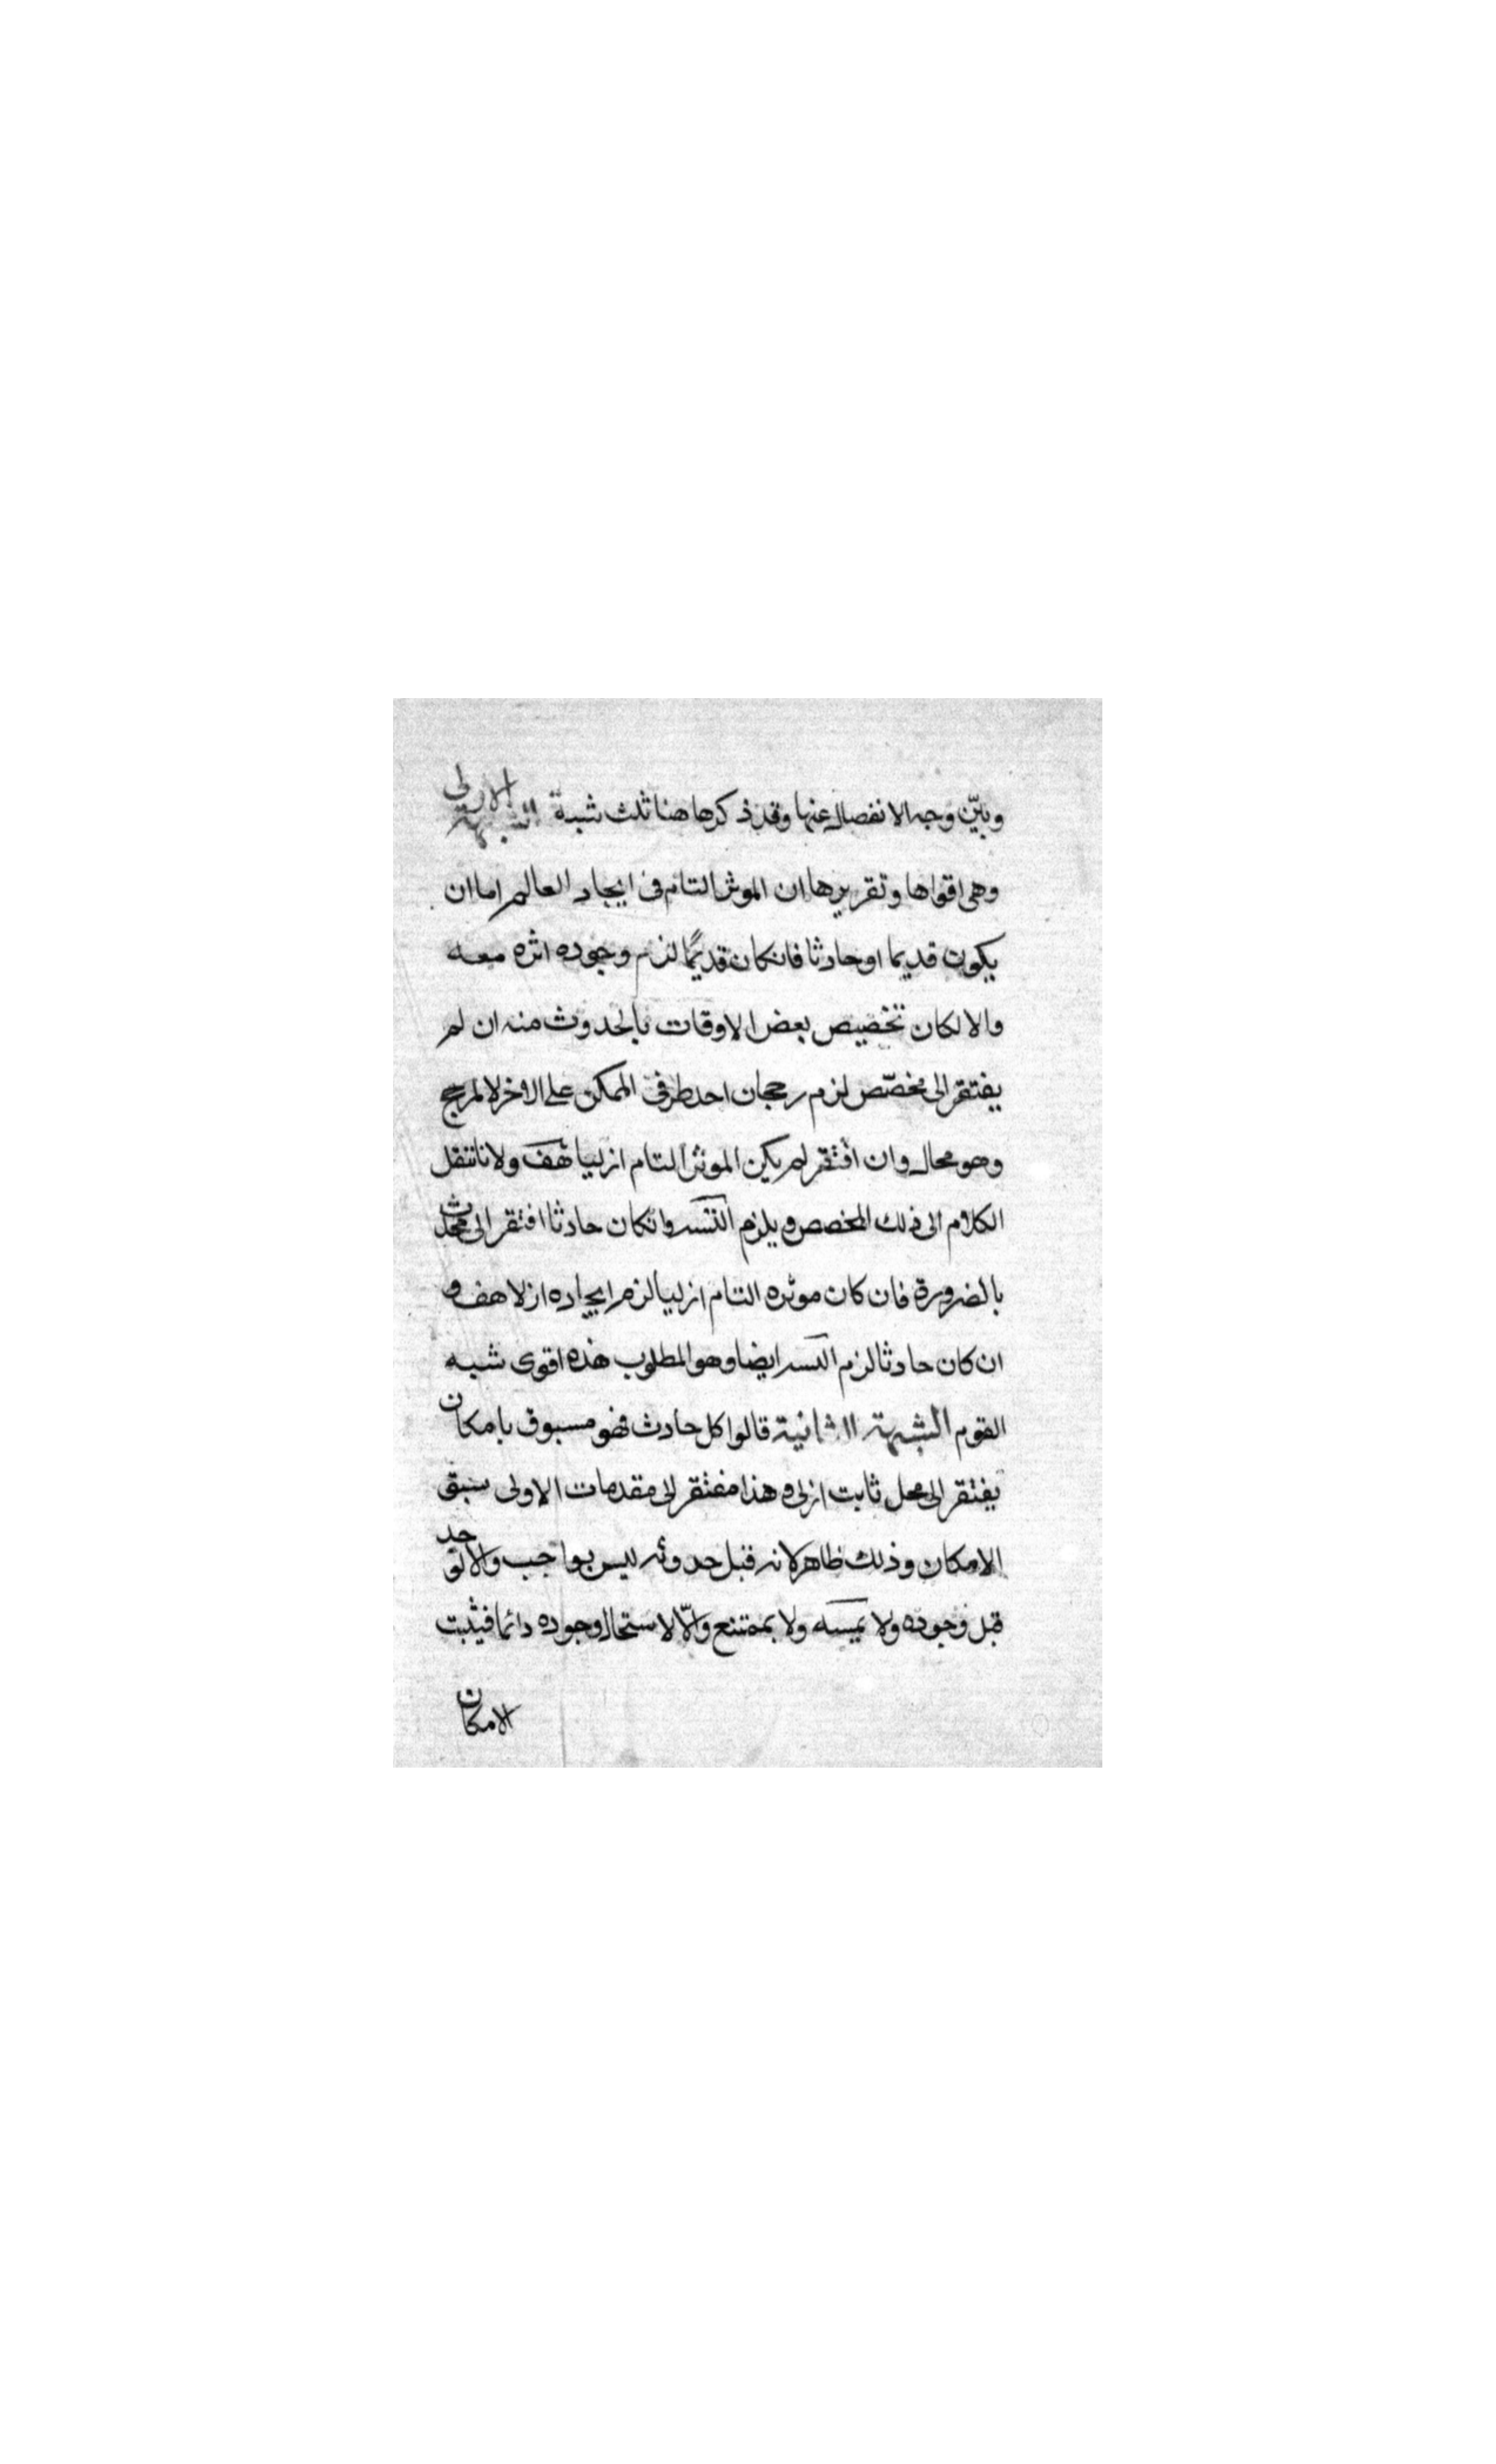 وبيّن وجه الانفصال عنها وقد ذكرها هنا ثلث شبه الشبهة الاولى
وهى اقواها وتقريرها ان الموثر التام فى ايجاد العالم اما ان
يكون قديما او حادثا فانكان قديمًا لزم وجوده اثره معه
والا لكان تخصيص بعض الاوقات بالحدوث منه ان لم
يفتقر الى مخصّص لزم رجحان احد طرفى الممكن على الاخر لا لمرجح
وهو محال وان افتقر لم يكن الموثر التام ازليا هف ولانا ننقل
الكلام الى ذلك المخصص ويلزم التسـ وانكان حادثا افتقر الى محدث
بالضرورة فان كان موثره التام ازليا لزم ايجاده ازلا هف و
ان كان حادثا لزم التسـ ايضا وهو المطلوب هذه اقوى شبه
القوم الشبهة الثانية قالوا كل حادث فهو مسبوق بامكان
يفتقر الى محل ثابت ازلى وهذا مفتقر الى مقدمات الاولى سبق
الامكان وذلك ظاهر لانه قبل حدوثه ليس بواجب والا لوجد
قبل وجوده ولا بممتنع والّا لاستحال وجوده دائما فيثبت
الامكان